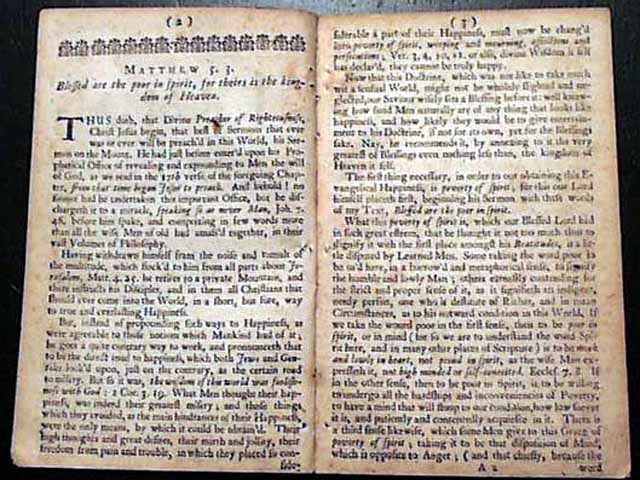 ( 2 )
MATTHEW 5. 3.
Blessed are the poor in spirit, for theirs is the king-
dom of Heaven.
THUS doth, that Divine Preacher of Righteousness,
Christ Jesus begin, that best of Sermons that ever
was or ever will be preach'd in this World, his Ser-
mon on the Mount. He had just before enter'd upon his Pro-
phetical Office of revealing and expounding to Men the will
of God, as we read in the 17th verse of the foregoing Chap-
ter, from that time began Jesus to preach. And behold! no
sooner had he undertaken this important Office, but he dis-
chargeth it to a miracle, speaking so as never Man, Joh. 7.
46. before him spake, and comprising in few words more
than all the wise Men of old had amass'd together, in their
vast Volumes of Philosophy.
Having withdrawn himself from the noise and tumult of
the multitude, which flock'd to him from all parts about Je-
rusalem, Matt. 4. 25. he retires to a private Mountain, and
there instructs his Disciples, and in them all Christians that
should ever come into the World, in a short, but sure, way
to true and everlasting Happiness.
But, instead of propounding such ways to Happiness, as
were agreeable to those notions which Mankind had of it;
he goes a quite contrary way to work, and pronounceth that
to be the direct road to happiness, which both Jews and Gen-
tiles look'd upon, just on the contrary, as the certain road
to misery. But so it was, the wisdom of this world was foolish-
ness with God: 1 Cor. 3. 19. What Men thought their hap-
piness, was indeed their greatest misery; and those things
which they avoided, as the main hindrances of their Happiness,
were the only means, by which it could be obtain'd. Their
high thoughts and great desires, their mirth and jollity, their
freedom from pain and trouble, in which they placed so con-
side-
( 3 )
siderable a part of their Happiness, must now be chang'd
into poverty of spirit, weeping and mourning, afflictions and
persecutions; Ver. 3, 4, 10, 11. or else, divine Wisdom it self
has declar'd, they cannot be truly happy.
Now that this Doctrine, which was not like to take much
with a sensual World, might not be wholely slighted and ne-
glected, our Saviour wisely sets a Blessing before it: well know-
ing how fond Men naturally are of any thing that looks like
happiness, and how likely they would be to give entertain-
ment to his Doctrine, if not for its own, yet for the Blessings
sake. Nay, he recommends it, by annexing to it the very
greatest of Blessings even nothing less than, the kingdom of
Heaven it self.
The first thing necessary, in order to our obtaining this E-
vangelical Happiness, is poverty of spirit, for this our Lord
himself placeth first, beginning his Sermon with these words
of my Text, Blessed are the poor in spirit.
What this poverty of spirit is, which our Blessed Lord had
in such great esteem, that he thought it not too much thus to
dignify it with the first place amongst his Beatitudes, is a lit-
tle disputed by Learned Men. Some taking the word poor to
be us'd here, in a borrow'd and metaphorical sense, to signify
the humble and lowly Man; others earnestly contending for
the strict and proper sense of it, as it signifieth an indigent,
needy person, one who is destitute of Riches, and in mean
Circumstances, as to his outward condition in this World. If
we take the word poor in the first sense, then to be poor in
spirit, or in mind (for so we are to understand the word Spi-
rit here, and in many other places of Scripture) is to be meek
and lowly in heart, not proud in spirit, as the wise Man ex-
presseth it, not high minded or self-conceited. Eccles. 7. 8. If
in the other sense, then to be poor in Spirit, is to be willing
to undergo all the hardships and inconveniencies of Poverty,
to have a mind that will stoop to our condition, how low soever
it is, and patiently and contentedly acquiesce in it. There is
a third sense likewise, which some Men give to this Grace of
poverty of spirit; taking it to be that disposition of Mind,
which is opposite to Anger; (and that chiefly, because the
A 2
word